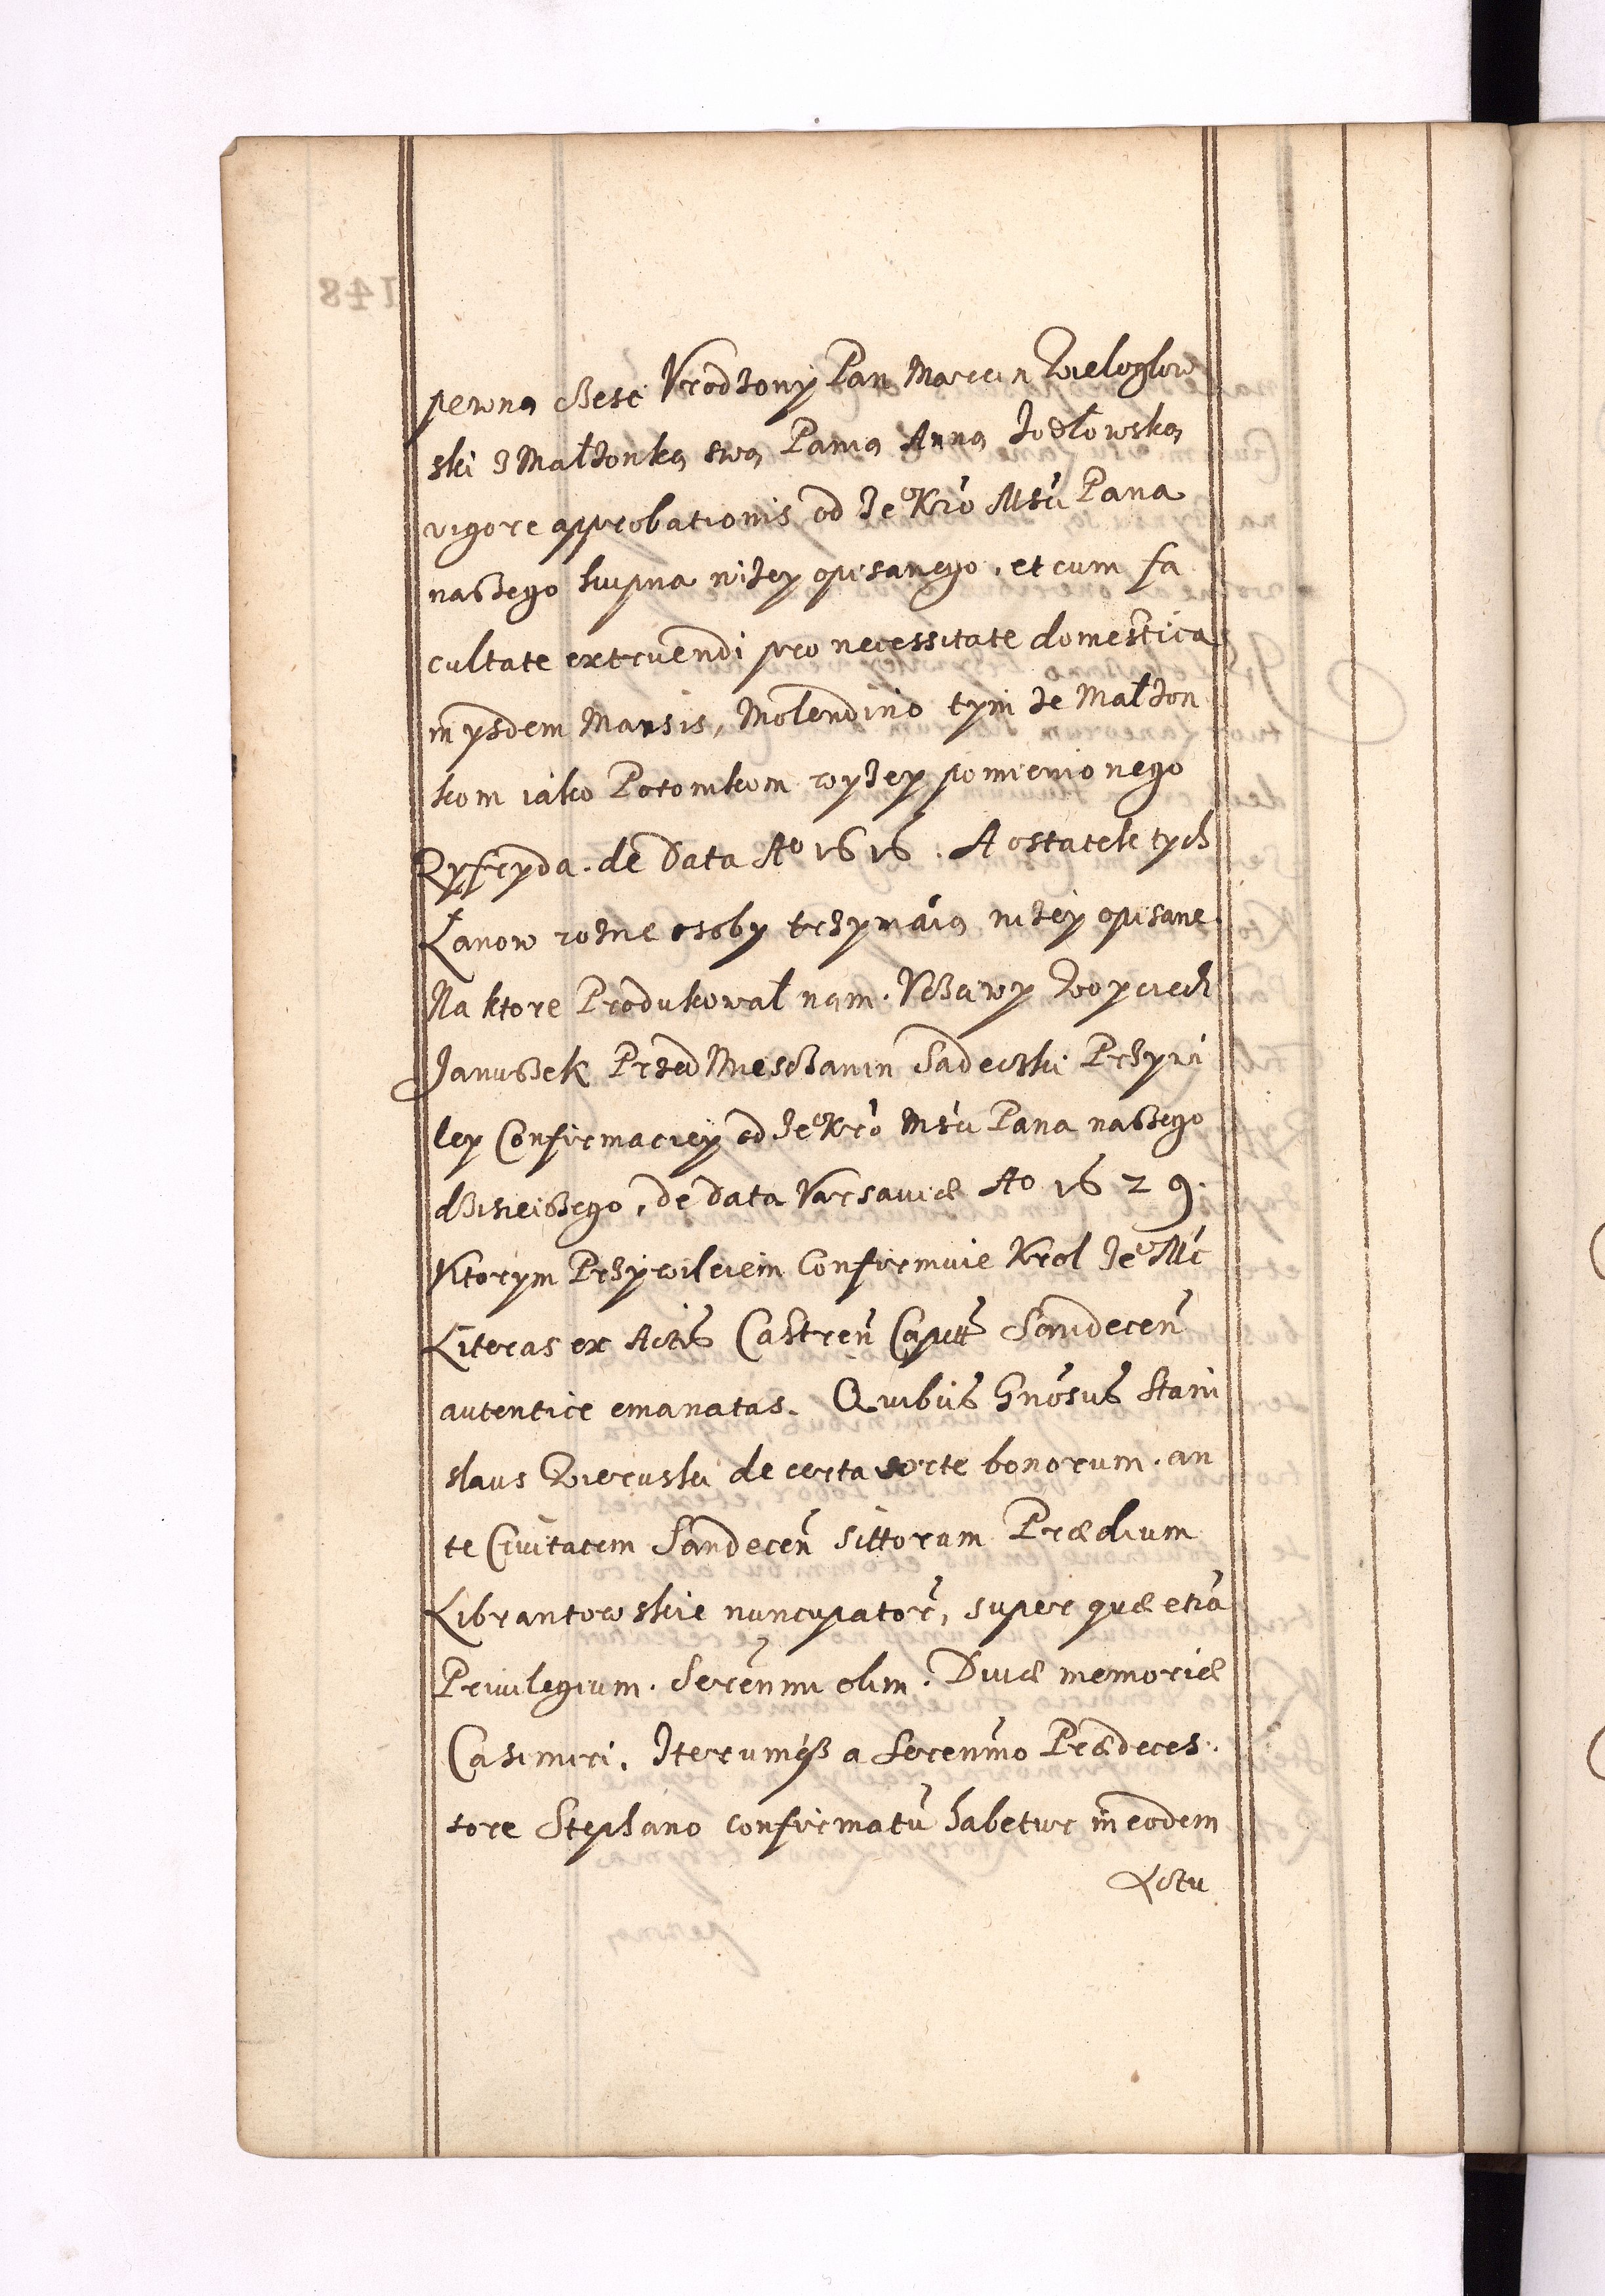 pewną część Vrodzony Pan Marcin Wielogłow
ski Z Małzonką swą Panią Anną Jodłowską
vigore approbationis od Je° Kró Msći Pana
naszego kupna niżey opisanego, et cum fa
cultate extruendi pro necessitate domestica
in ysdem Mansis, Molendino tym ze Małzon
kom iako Potomkom wyżey pomienionego
Zyfryda. de Data A° 1616. A ostatek tych
Łanow rozne osoby trzymáią niżey opisane.
Na ktore Produkował nam. Vczciwy Woyciech
Januszek Przed Miesczanin Sadecki Przywi
ley Confirmaciey od Je° Kró Msći Pana naszego
dzisieiszego, de data Varsaviæ A° 1629.
Ktorym Przywileiem Confirmuie Krol Je° Mć
Literas ex Actis Castren̄ Capitt Sandecen̄
autentice emanatas. Quibus Gnōsus Stani
slaus Wieruski de certa sorte bonorum. an
te Civitatem Sandecen̄ sittorum Prædium
Librantowskie nuncupator̄, super quæ etiā
Privilegium. Seren̄mi olim. Divæ memoriæ
Casimiri. Iterumq́ a Seren̄mo Prædeces.
sore Stephano confirmatū habetur in eodem
Actu
148